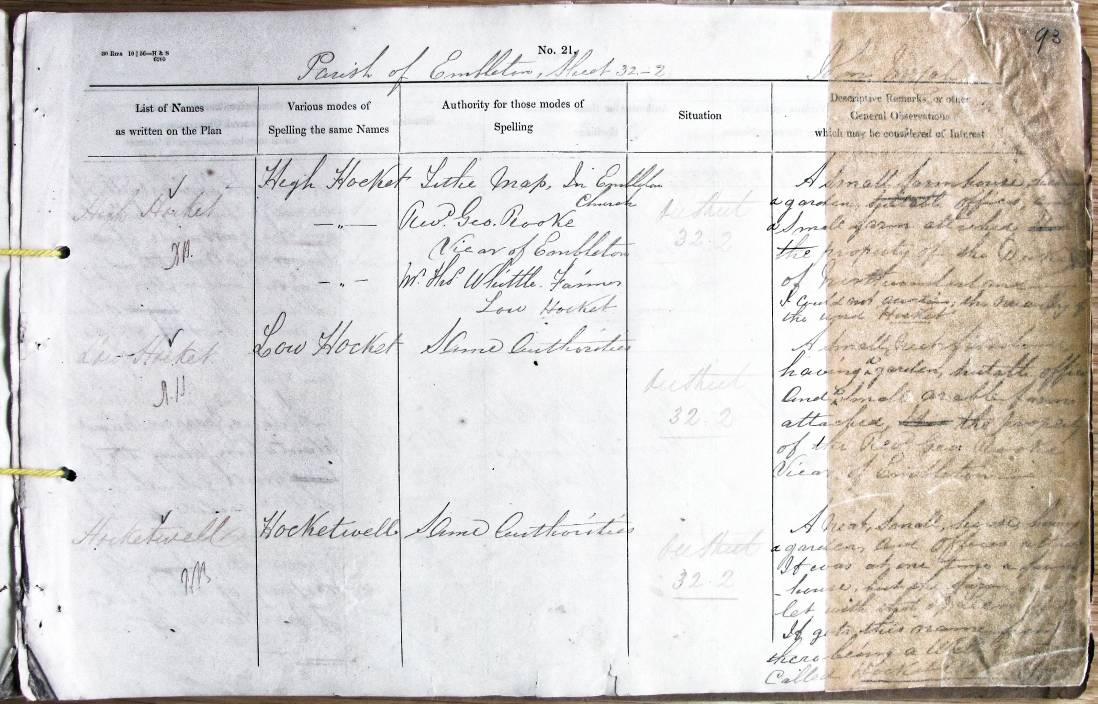 30 Rms 10 | 56—H & S
6200
No. 21.
93
Parish of Embleton, Sheet 32-2
List of Names
as written on the Plan
Various modes of
Spelling the same Names
Authority for those modes of
Spelling
Situation
Descriptive Remarks, or other
General Observations
which may be considered of Interest
High Hocket
High Hocket
Tithe Map, In Embleton
Church
— „ —
Revd. Geo. Rooke
Vicar of Embleton
— „ —
Mr. Thos Whittle. Farmer
Low Hocket
See Sheet
32.2
A small farmhouse,
a garden, offices,
a small farm attached
the property of the
of Northumberland
I could not the meaning of
the word Hocket
Low Hocket
Low Hocket
Same Authorities
See Sheet
32.2
A small
having a garden, suitable offices
And a Small arable farm
attached, the property
of the Revd. Geo. Rooke
Vicar of Embleton
Hocketwell
Hocketwell
Same Authorities
See Sheet
32.2
A neat, small, house having
a garden and Offices
It was at one time a farm
-house, but
let with
It gets this name from
there being a Well
Called